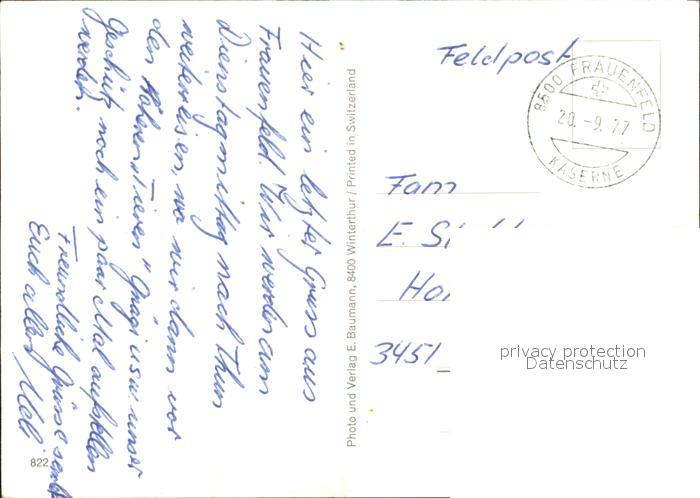 Hier ein letzter Gruss aus
Frauenfeld. Wir werden am
Dienstagmittag nach Thun
weiterreisen, wo wir dann vor
den "Höheren Tieren" Gnägi usw. unser
Geschütz noch ein paar Mal aufstellen
werden.
Freundliche Grüsse sendet
Euch allen Ueli
822
Photo und Verlag E. Baumann, 8400 Winterthur / Printed in Switzerland
Feldpost
8500 FRAUENFELD
20.-9.77
KASERNE
Fam
E. Si
Ho
3451
privacy protection
Datenschutz